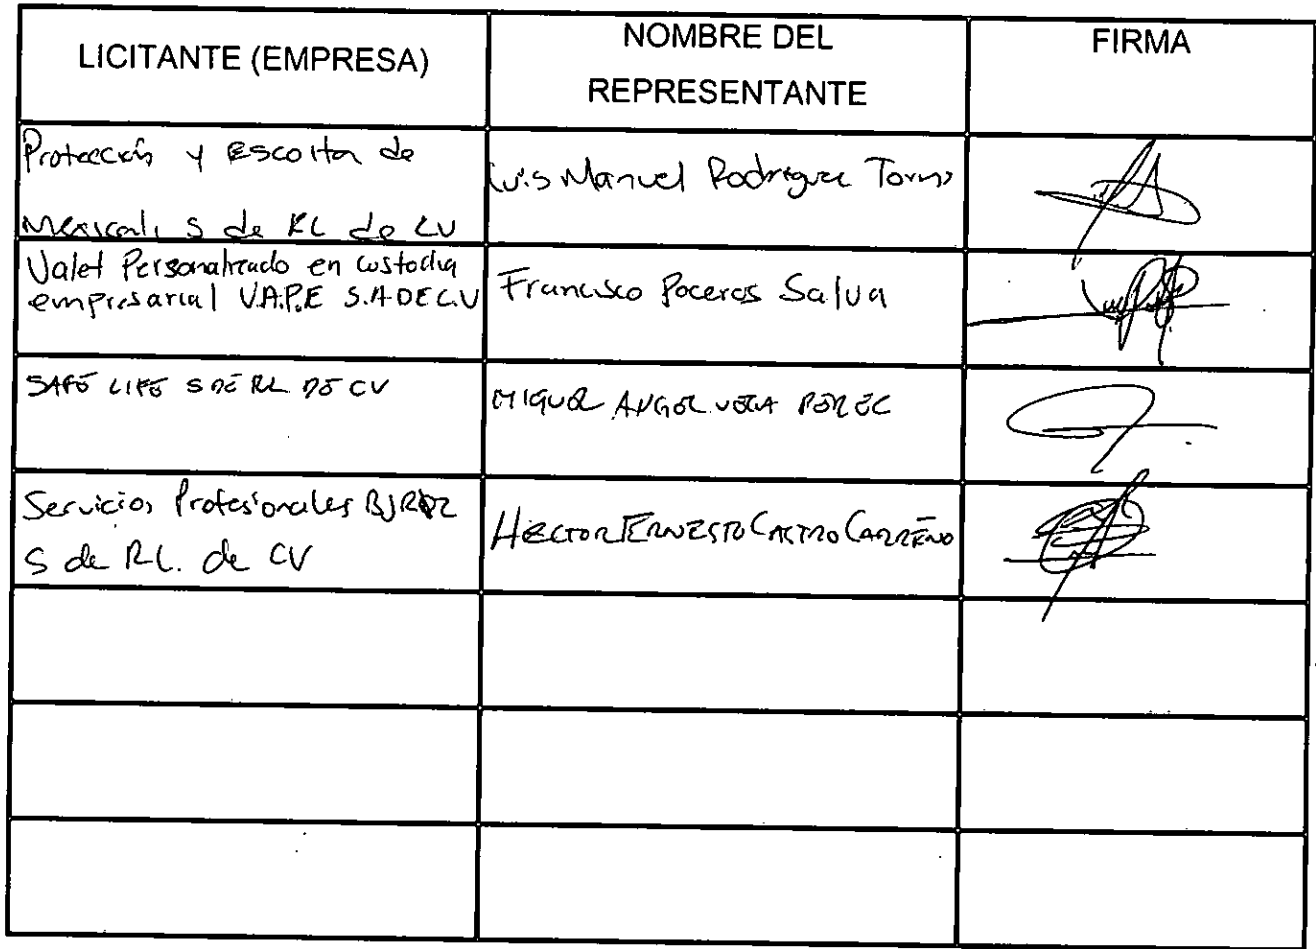 LICITANTE (EMPRESA)
NOMBRE DEL
REPRESENTANTE
FIRMA
Protección y Escolta de
Mexicali S de RL de CV
Luis Manuel Rodriguez Torres
Valet Personalizado en custodia
empresarial V.A.P.E S.A DE C.V
Francisco Poceros Salva
SAFE LIFE S DE RL DE CV
MIGUEL ANGEL VERA PEREZ
Servicios Profesionales
S de RL. de CV
HECTOR ERNESTO CASTRO CARREÑO